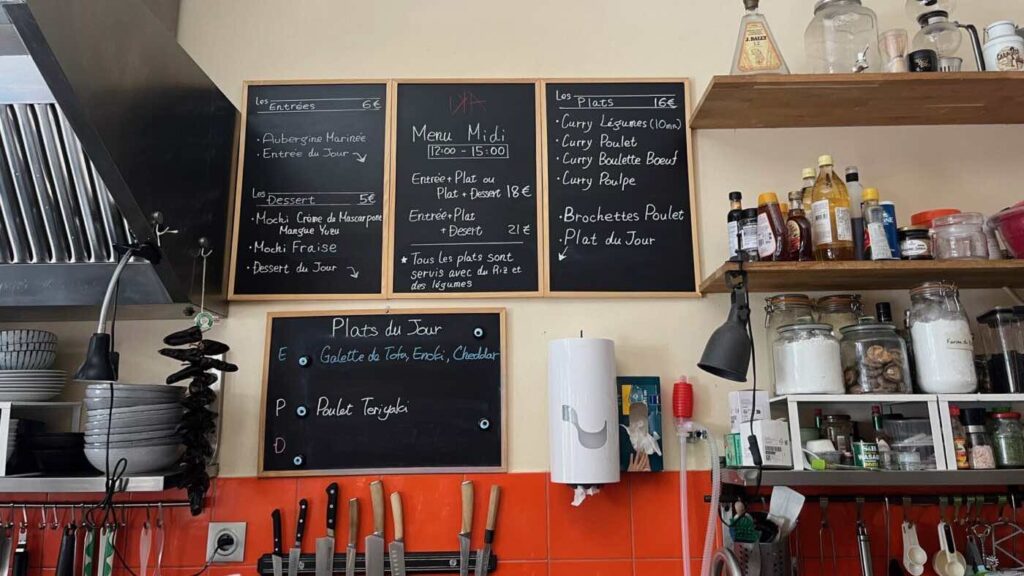 Les
Entrées 6€
• Aubergine Marinée
• Entrée du Jour
Les
Dessert 5€
• Mochi Crème du Mascarpone
Mangue Yuzu
• Mochi Fraise
• Dessert du Jour
Menu Midi
12:00 - 15:00
Entrée + Plat ou
Plat + Dessert 18€
Entrée + Plat
+ Desert 21€
* Tous les plats sont
servis avec du Riz et
des légumes
Les
Plats 16€
• Curry Légumes (10mn)
• Curry Poulet
• Curry Boulette Bœuf
• Curry Poulpe
• Brochettes Poulet
• Plat du Jour
Plats du Jour
E • Galette de Tofu, Enoki, Cheddar
P • Poulet Teriyaki
D
J. BALLY